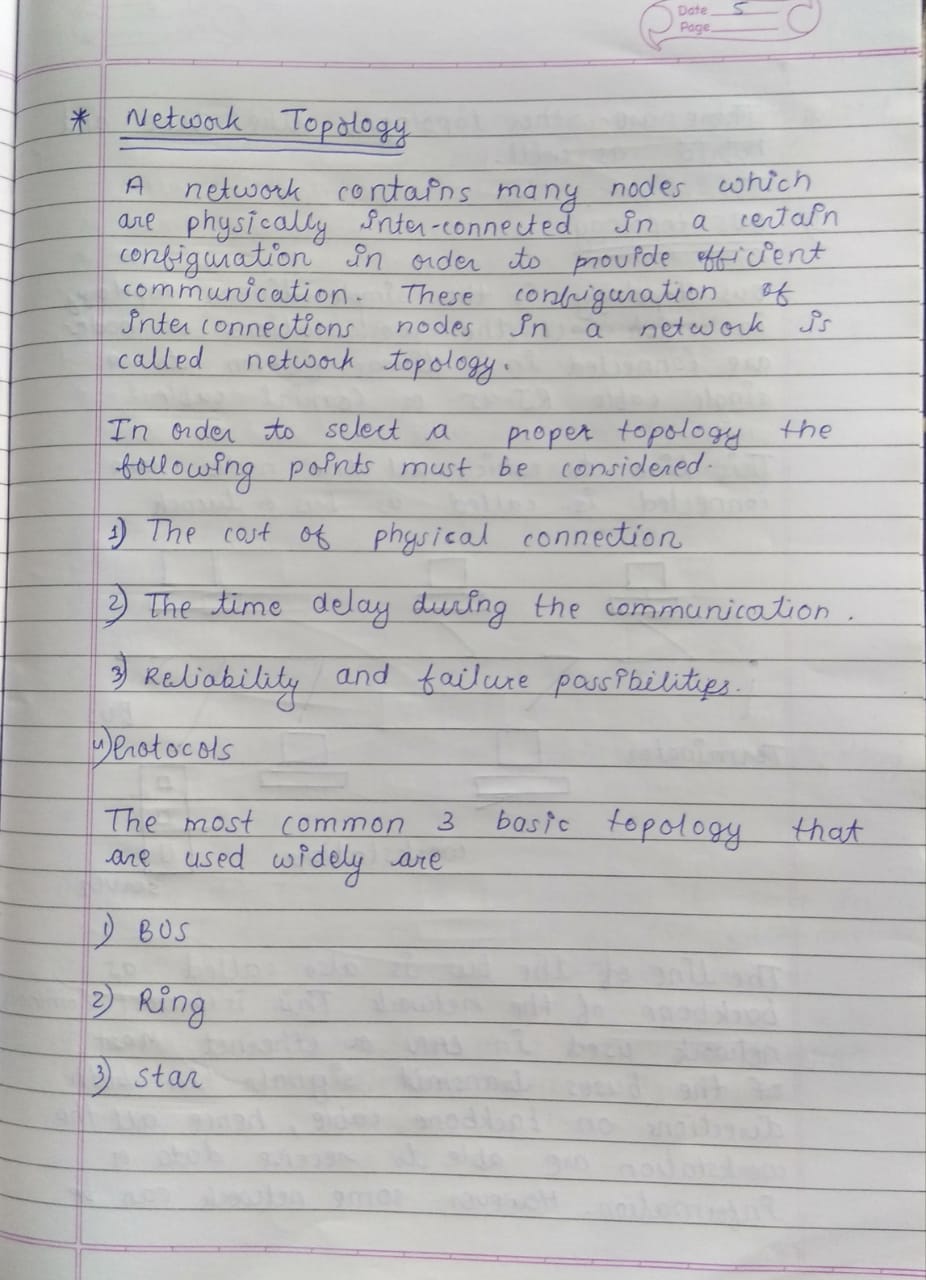 Date 5
Page
* Network Topology
A network contains many nodes which
are physically inter-connected in a certain
configuration in order to provide efficient
communication. These configuration of
inter connections nodes in a network is
called network topology.
In order to select a proper topology the
following points must be considered.
1) The cost of physical connection
2) The time delay during the communication.
3) Reliability and failure possibilities.
4) Protocols
The most common 3 basic topology that
are used widely are
1) BUS
2) Ring
3) Star